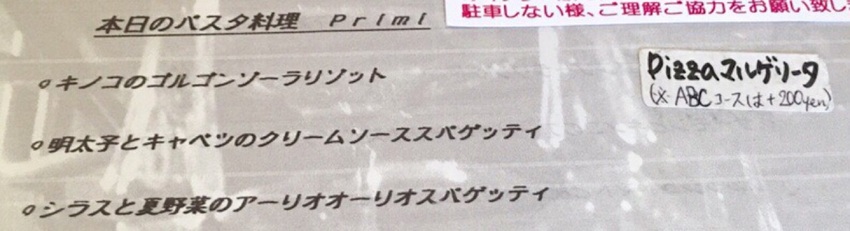 駐車しない様、ご理解ご協力をお願い致し
本日のパスタ料理 Primi
○キノコのゴルゴンゾーラリゾット
○明太子とキャベツのクリームソーススパゲッティ
○シラスと夏野菜のアーリオオーリオスパゲッティ
Pizzaマルゲリータ
(※ABCコースは+200yen)